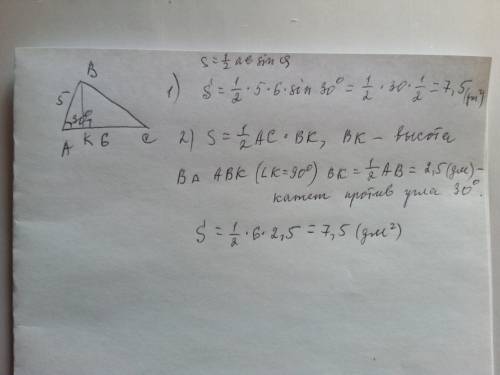 S = 1/2 ab sin α
B
5
30°
A K 6 C
1) S = 1/2 · 5 · 6 · sin 30° = 1/2 · 30 · 1/2 = 7,5 (дм²)
2) S = 1/2 AC · BK, BK – высота
В △ ABK (∠K=90°) BK = 1/2 AB = 2,5 (дм) –
катет против угла 30°.
S = 1/2 · 6 · 2,5 = 7,5 (дм²)